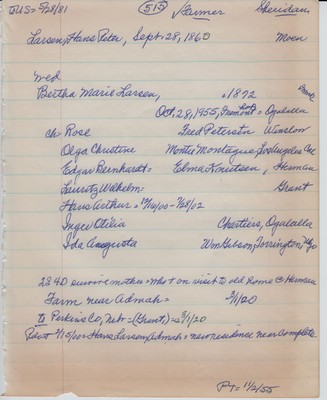 IUS= 5/28/81 (515) Farmer Sheridan,
Larsen, Hans Peter, Sept. 28, 1860 Moen
wed
Bertha Marie Larsen, 1872
Oct, 28, 1955, Fremont = Ogalalla
ch= Rose Fred Peterson Winslow
Olga Christine Monty Montague, Los Angeles Cal
Edgar Bernhardt= Elma Knutsen, Herman
Lauritz Wilhelm= Grant
Hans Arthur= 12/14/00-7/28/02
Inger Otilia Charters, Ogalalla
Ida Augusta Wm Gibson, Torrington, Wyo
22 & D survive mother= Who + on visit to old home @ Herman
Farm near Admah= 3/1/20
to Perkins Co, Nebr= (Grant,)= 3/1/20
Pilot 2/15/00= Hans Larsen, Admah= new residence near complete
PT= 11/2/55